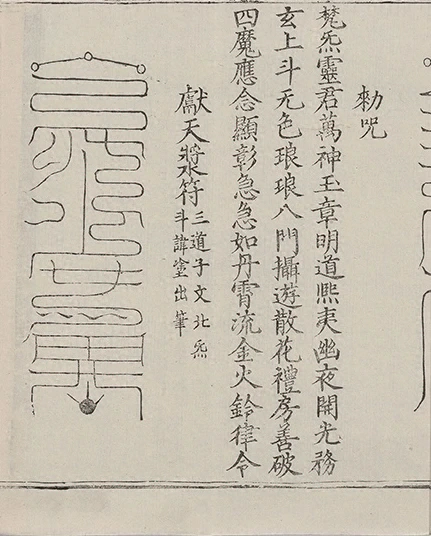 勑呪
梵炁靈君萬神玉章明道熈夷幽夜開光務
玄上斗无色琅琅八門攝遊散花禮房善破
四魔應念顯彰急急如丹霄流金火鈴律令
獻天漿符
三道子文北炁
斗諱塗出筆